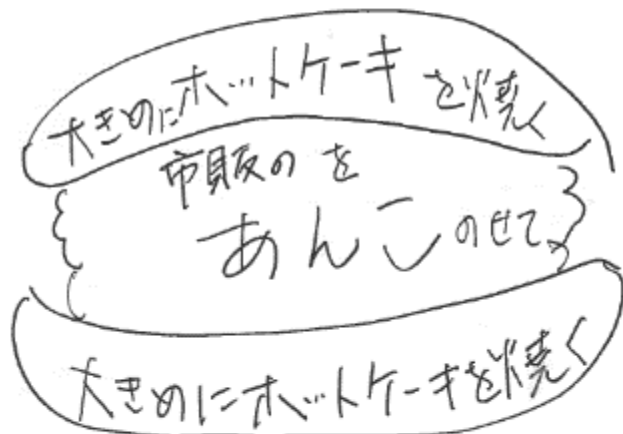 大きめにホットケーキを焼く
市販のを
あんこのせて、
大きめにホットケーキを焼く